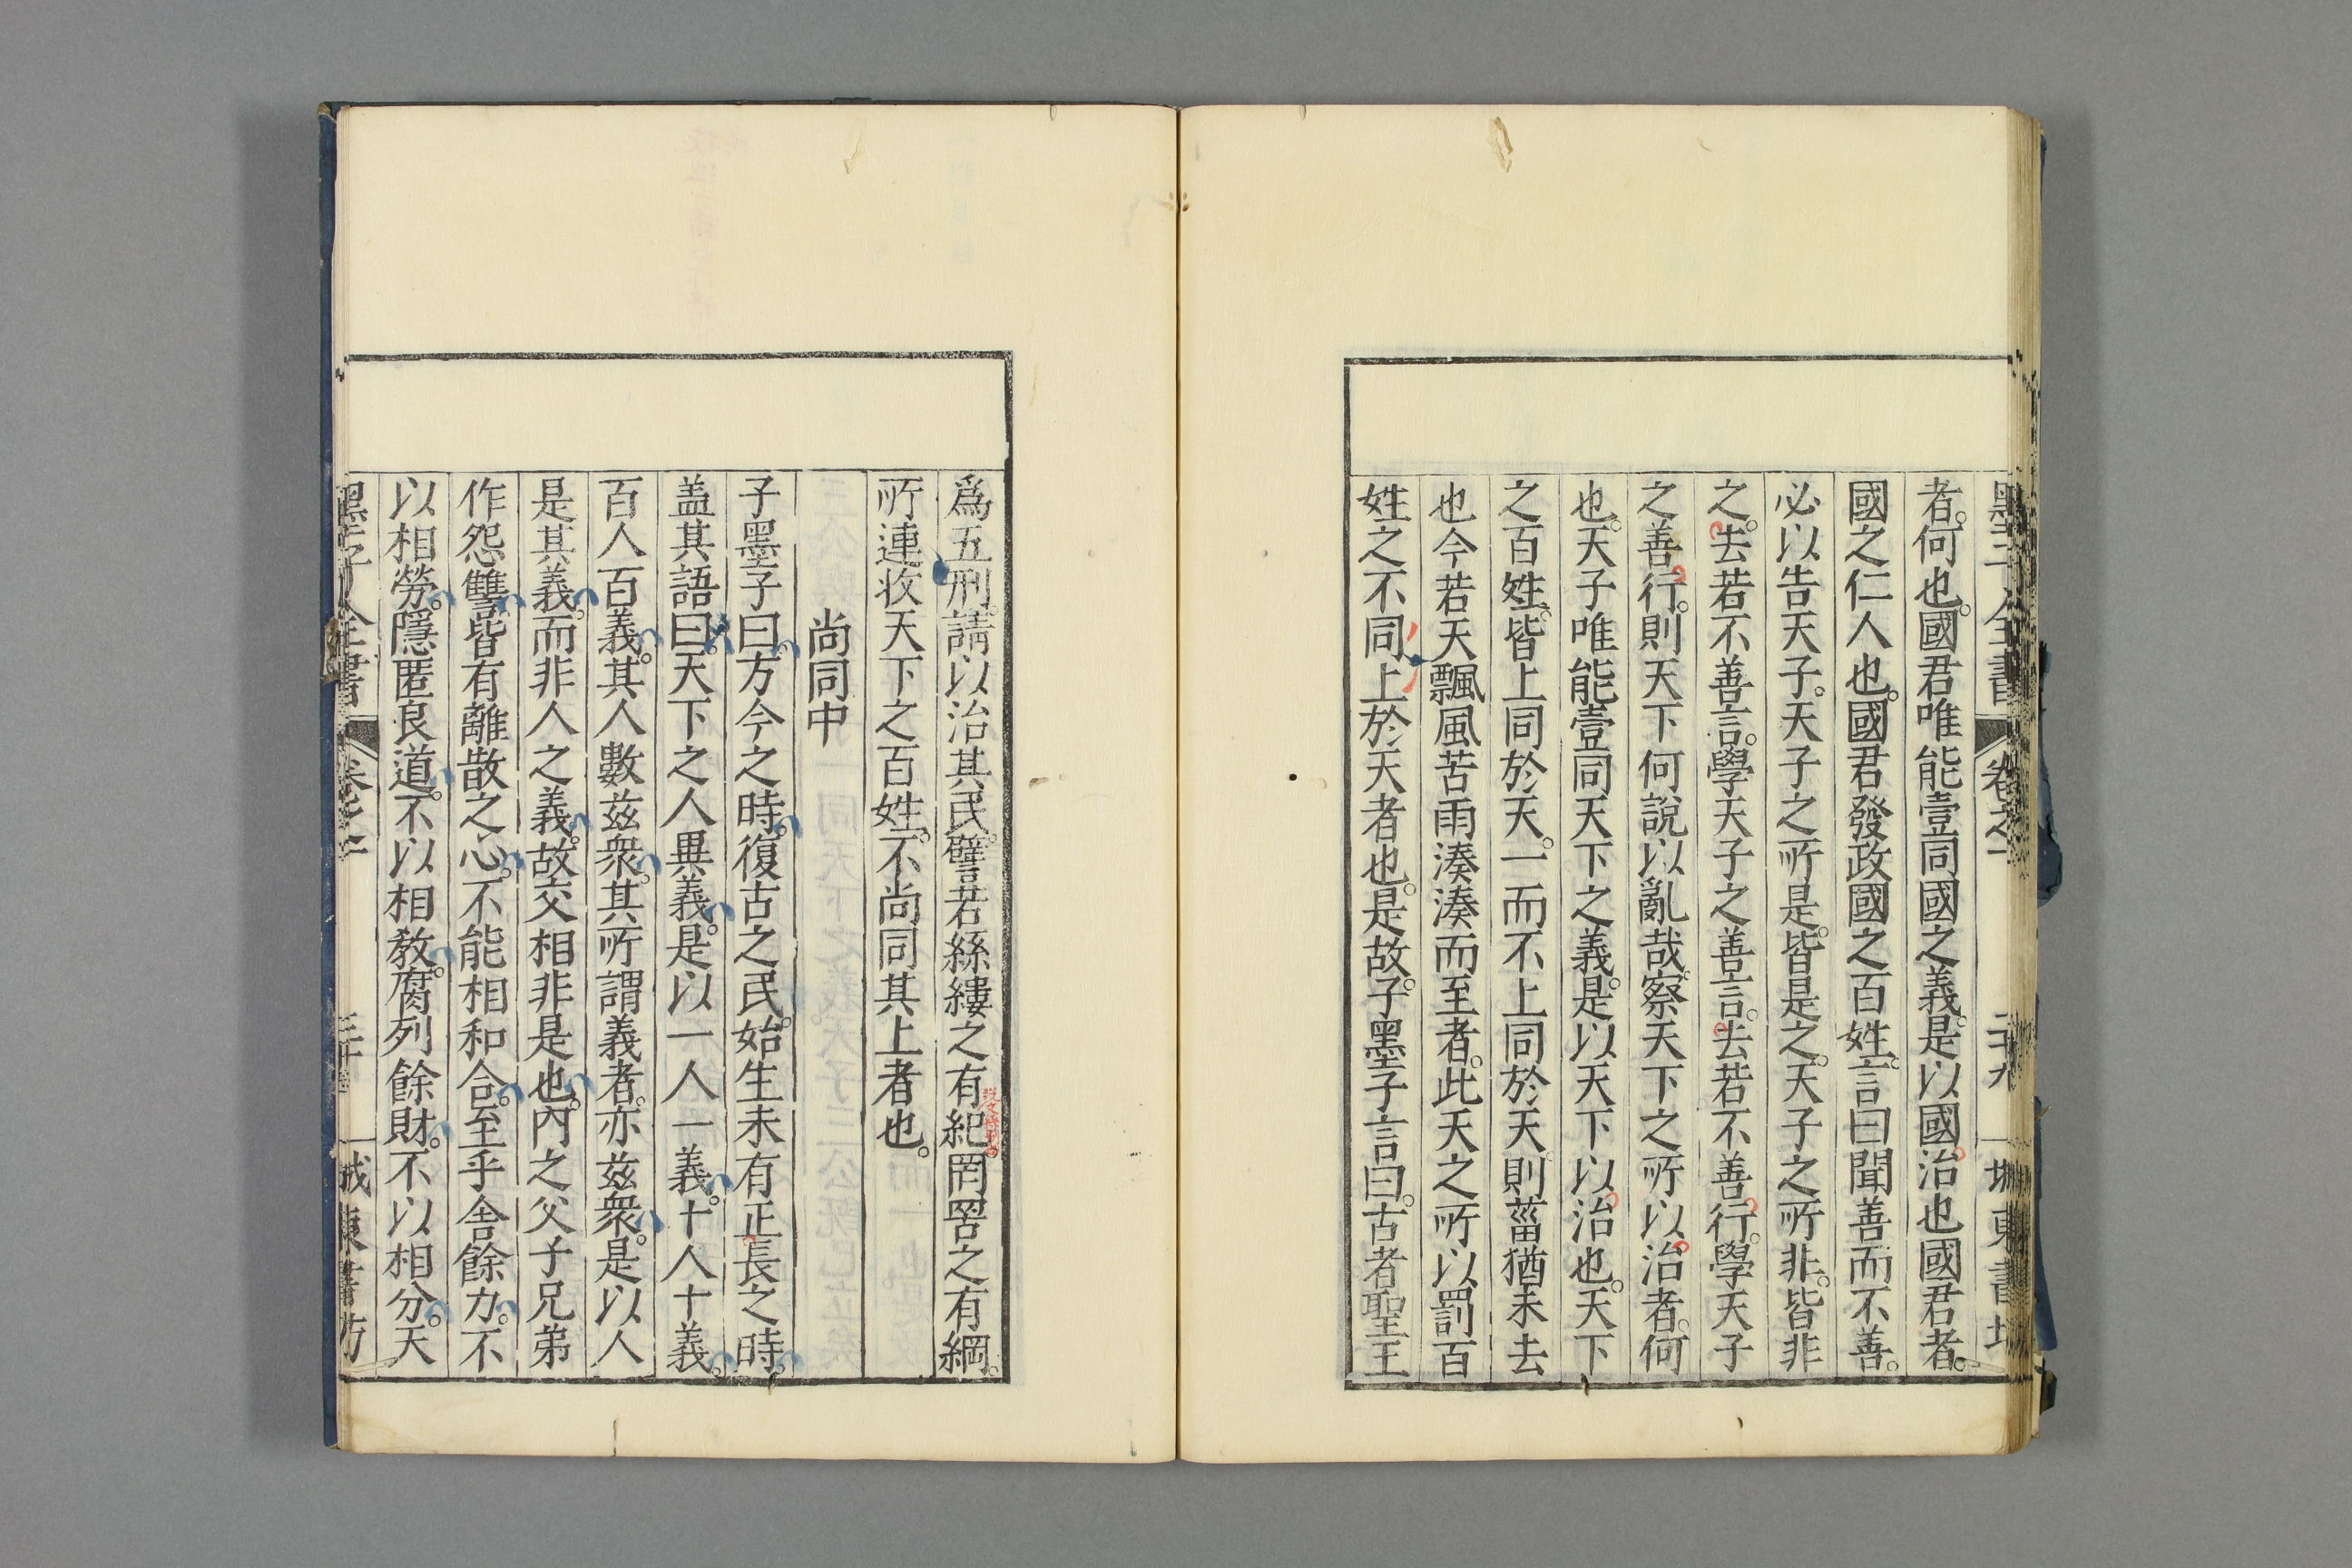 墨子全書 卷之一
者。何也。國君唯能壹同國之義。是以國治也國君者。
國之仁人也。國君發政國之百姓。言曰聞善而不善。
必以告天子。天子之所是。皆是之。天子之所非。皆非
之。去若不善言。學天子之善言。去若不善行。學天子
之善行。則天下何說以亂哉。察天下之所以治者。何
也。天子唯能壹同天下之義。是以天下以治也。天下
之百姓。皆上同於天。一而不上同於天。則菑猶未去
也今若天飄風苦雨湊湊而至者。此天之所以罰百
姓之不同上於天者也。是故。子墨子言曰。古者聖王
爲五刑。請以治其民。譬若絲縷之有紀罔罟之有綱。
所連收天下之百姓。不尚同其上者也。
尚同中
子墨子曰。方今之時。復古之民。始生未有正長之時。
盖其語曰。天下之人異義。是以一人一義。十人十義。
百人百義。其人數茲衆。其所謂義者。亦茲衆。是以人
是其義。而非人之義。故交相非是也。內之父子兄弟
作怨讐。皆有離散之心。不能相和合。至乎舍餘力。不
以相勞。隱匿良道。不以相敎。腐列餘財。不以相分。天
墨子全書